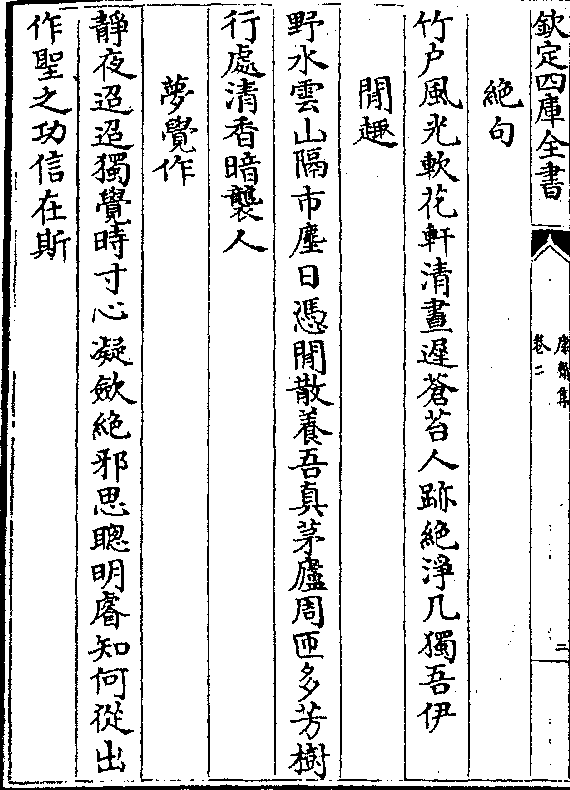 欽定四庫全書
康齋集
卷二
二
絶句
竹户風光軟花軒清晝遲蒼苔人跡絶淨几獨吾伊
閒趣
野水雲山隔市塵日憑閒散養吾真茅廬周匝多芳樹
行處清香暗襲人
夢覺作
靜夜迢迢獨覺時寸心凝斂絶邪思聰明睿知何從出
作聖之功信在斯